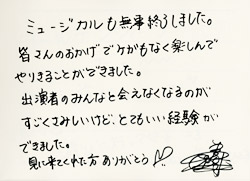 ミュージカルも無事終了しました。
皆さんのおかげでケガもなく楽しんで
やりきることができました。
出演者のみんなと会えなくなるのが
すごくさみしいけど、とてもいい経験が
できました。
見に来てくれた方ありがとう♡